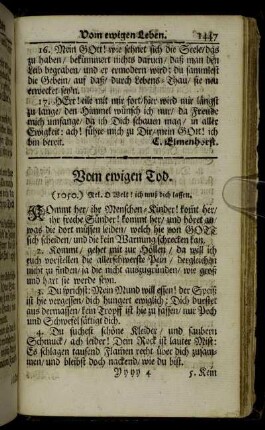 Vom ewigen Leben. 1447
16. Mein GOtt! wie sehnet sich die Seele/das
zu haben/ bekümmert nichts darum/ daß man den
Leib begraben/ und er ermodern wird: du sammlest
die Gebein/ auf daß/ durch Lebens-Thau/ sie neu
erwecket seyn.
17. HErr! eile mit mir fort/ hier wird mir längst
zu lange/ den Himmel wünsch ich mir/ da Freude
mich umfange/ da ich Dich schauen mag/ in alle
Ewigkeit: ach! führe mich zu Dir/ mein GOtt! ich
bin bereit. C. Elmenhorst.
Vom ewigen Tod.
(1010.) Mel. O Welt! ich muß dich lassen,
KOmmt her/ ihr Menschen-Kinder! komt her/
ihr freche Sünder! kommt her/ und höret an/
was die dort müssen leiden/ welch hie von GOTT
sich scheiden/ und die kein Warnung schrecken kan.
2. Kommt/ gehet mit zur Höllen/ da will ich
euch vorstellen die allerschwerste Pein/ dergleichen
nicht zu finden/ ja die nicht auszugründen/ wie groß
und hart sie werde seyn.
3. Du sprichst: Mein Mund will essen! der Speiß
ist hie vergessen/ dich hungert ewiglich: Dich dürstet
aus dermassen/ kein Tropff ist hie zu fassen/ nur Pech
und Schwefel sättigt dich.
4. Du suchest schöne Kleider/ und saubern
Schmuck/ ach leider! Dein Rock ist lauter Mist:
Es schlagen tausend Flamen recht über dich zusam-
men/ und bleibst doch nackend, wie du bist.
Yyyy 4 5. Kein